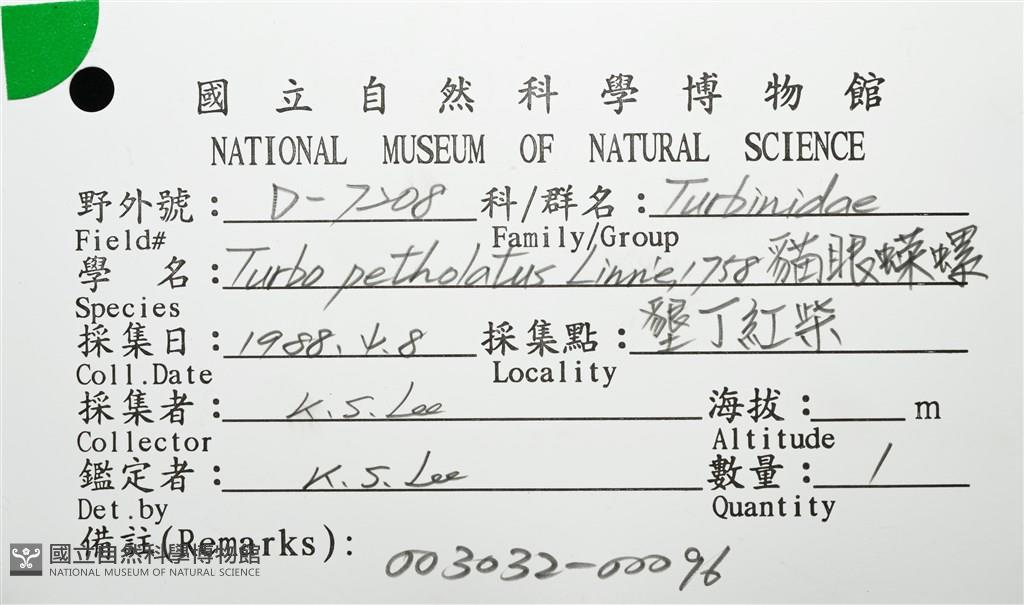 國立自然科學博物館
NATIONAL MUSEUM OF NATURAL SCIENCE
野外號：D-7208 科/群名：Turbinidae
Field# Family/Group
學 名：Turbo petholatus Linnie, 1758 貓眼蠑螺
Species
採集日：1988.4.8 採集點：墾丁紅柴
Coll.Date Locality
採集者：K.S.Lee 海拔： m
Collector Altitude
鑑定者：K.S.Lee 數量：1
Det.by Quantity
備註(Remarks):
003032-00096
國立自然科學博物館
NATIONAL MUSEUM OF NATURAL SCIENCE